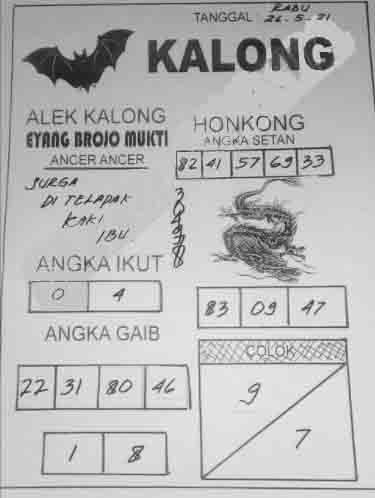 TANGGAL : RABU
26-5-21
KALONG
ALEK KALONG
EYANG BROJO MUKTI
ANCER ANCER
SURGA
DI TELAPAK
KAKI
IBU
HONKONG
ANGKA SETAN
82 41 57 69 33
ANGKA IKUT
0 4
83 09 47
ANGKA GAIB
22 31 80 46
1 8
COLOK
9
7